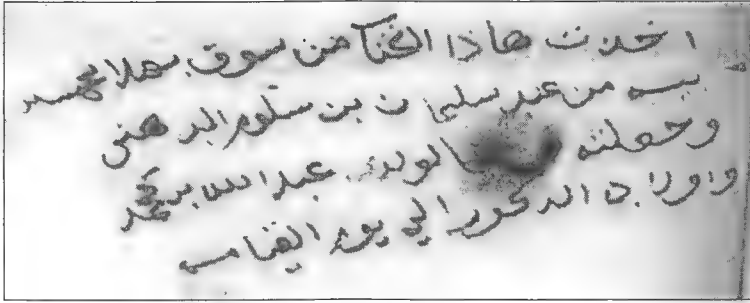 اخذت هاذا الكتا من سوق بهلا بخمسه
بيسه من عند سليمان بن سلوم الدهني
وجعلته لولدي عبدالله بن محمد
واولاده الدكور الى يوم القيامه